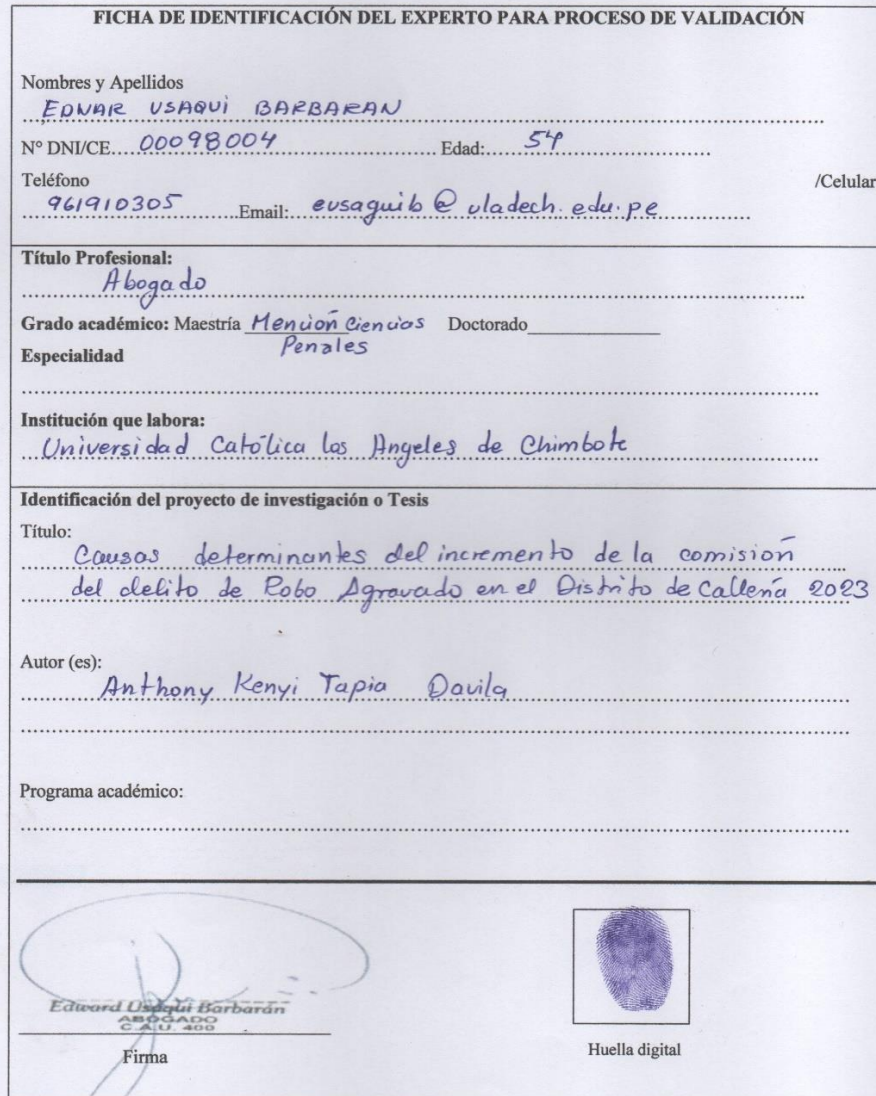 FICHA DE IDENTIFICACIÓN DEL EXPERTO PARA PROCESO DE VALIDACIÓN
Nombres y Apellidos
EDWAR USAQUI BARBARAN
N° DNI/CE 00098004 Edad: 54
Teléfono /Celular
961910305 Email: eusaquib@uladech.edu.pe
Título Profesional:
Abogado
Grado académico: Maestría Mención Ciencias Doctorado
Penales
Especialidad
Institución que labora:
Universidad Católica los Angeles de Chimbote
Identificación del proyecto de investigación o Tesis
Título:
Causas determinantes del incremento de la comisión
del delito de Robo Agravado en el Distrito de Callería 2023
Autor (es):
Anthony Kenyi Tapia Davila
Programa académico:
Edward Usaqui Barbarán
ABOGADO
C.A.U. 400
Firma
Huella digital